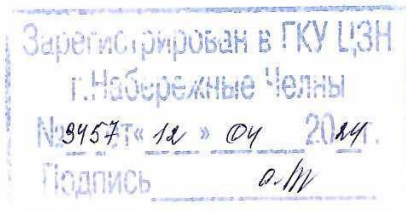 Зарегистрирован в ГКУ ЦЗН
г.Набережные Челны
№3457от« 12 » 04 2024г.
Подпись